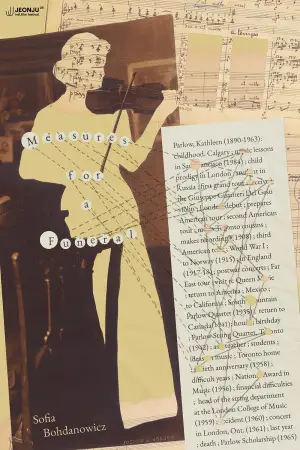 JEONJU
intl. film festival
Measures
for
a
Funeral
Parlow, Kathleen (1890-1963):
childhood, Calgary ; music lessons
in San Francisco (1984) ; child
prodigy in London ; student in
Russia ; first grand tour
the Giuseppe Guarneri del Gesù
violin ; London debut ; prepares
American tour ; second American
tour ; Toronto cousins ;
makes recordings 1908 ; third
American tour ; World War I ;
to Norway (1915) ; in England
(1917-18) ; postwar concerts ; Far
East tour with Queen
; return to America ; Mexico ;
to California ; South
Parlow Quartet (1935) ; return to
Canada (1941) ; birthday
; Parlow String Quartet, Toronto
(1942) ; teacher ; students ;
ideas music ; Toronto home
birthday anniversary (1958) ;
difficult years ; National Award in
Music (1956) ; financial difficulties
; head of the string department
at the London College of Music
(1959) ; accident (1960) ; concert
in London, Ont. (1961) ; last year
; death ; Parlow Scholarship (1965)
Sofia
Bohdanowicz